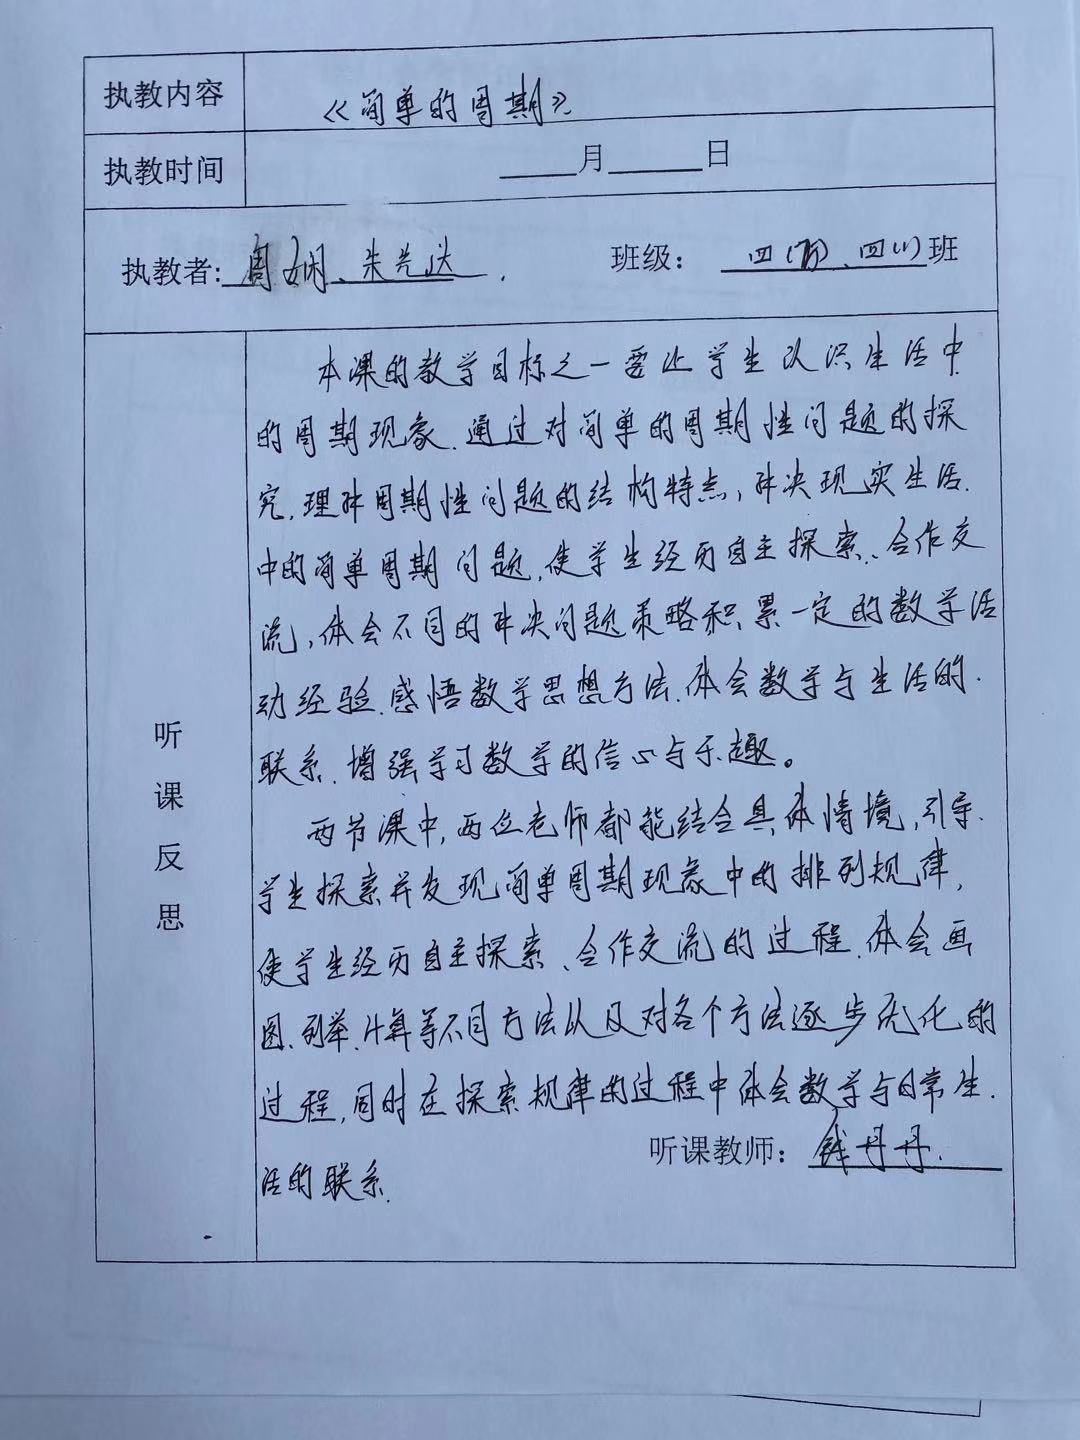 执教内容 《简单的周期》
执教时间 月 日
执教者: 周娴、朱兴达 班级: 四 、四(1)班
听课反思
本课的教学目标之一要让学生认识生活中
的周期现象.通过对简单的周期性问题的探
究,理解周期性问题的结构特点,解决现实生活.
中的简单周期问题,使学生经历自主探索、合作交
流,体会不同的解决问题策略积累一定的数学活
动经验.感悟数学思想方法.体会数学与生活的.
联系.增强学习数学的信心与乐趣。
两节课中,两位老师都能结合具体情境,引导.
学生探索并发现简单周期现象中的排列规律,
使学生经历自主探索、合作交流的过程.体会画
图、列举、计算等不同方法以及对各个方法逐步优化的
过程,同时在探索规律的过程中体会数学与日常生.
活的联系.
听课教师: 钱丹丹.